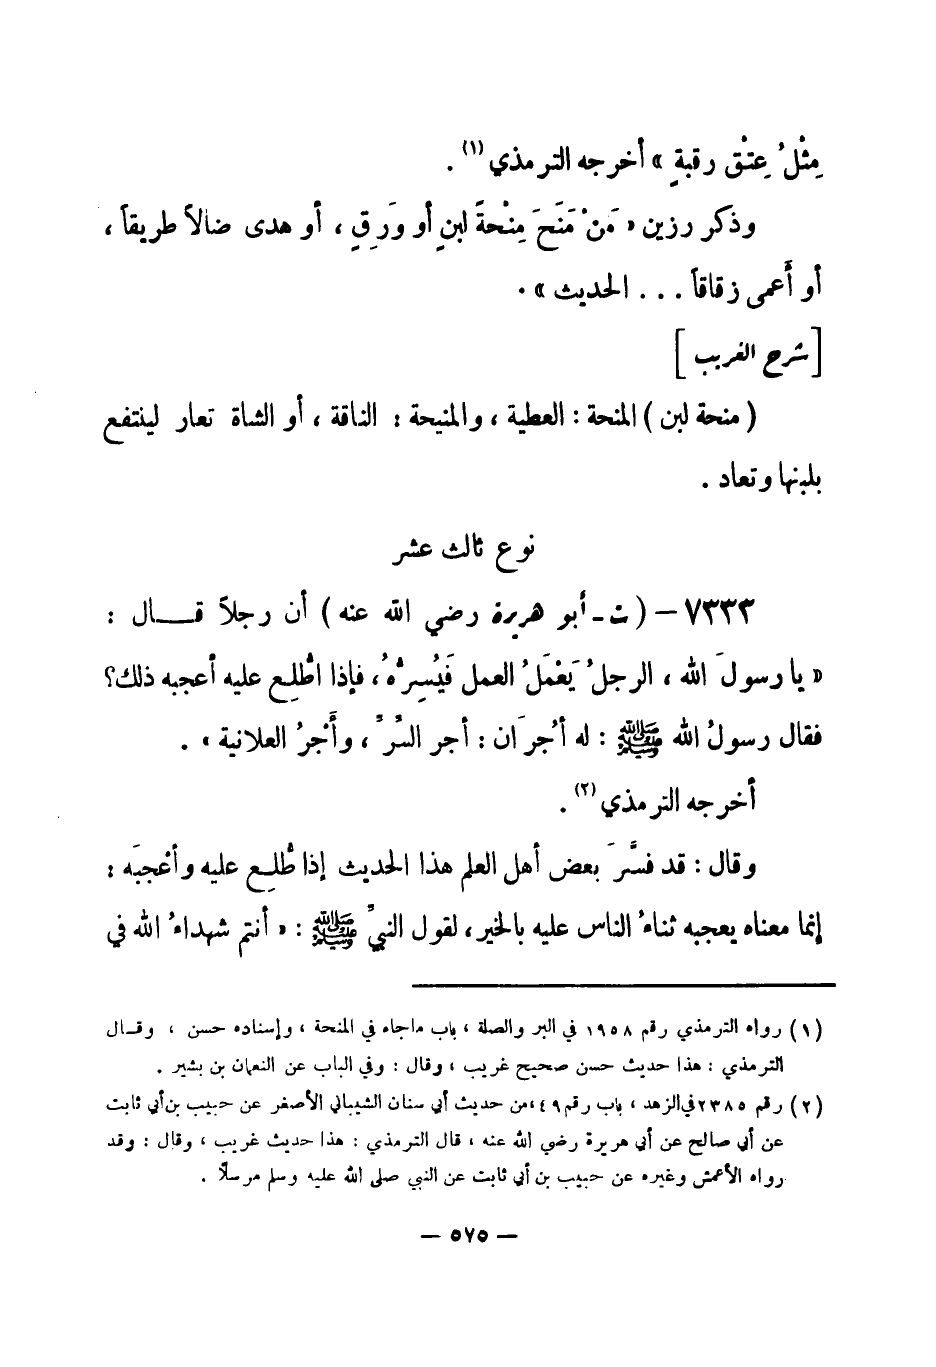 مِثْلُ عِتْق رقبةٍ » أخرجه الترمذي (١) .
وذكر رزين « مَنْ مَنَحَ مِنْحةً لبنٍ أو وَرِقٍ ، أو هدى ضالاً طريقاً ،
أو أَعمى زقاقاً . . . الحديث » .
[ شرح الغريب ]
( منحة لبن ) المنحة : العطية ، والمنيحة : الناقة ، أو الشاة تعار لينتفع
بلبنها وتعاد .
نوع ثالث عشر
٧٣٣٣ – ( ت - أبو هريرة رضي الله عنه ) أن رجلاً قـــال :
« يا رسولَ الله ، الرجلُ يَعْمَلُ العمل فَيُسِرُّهُ ، فإذا اطُّلِع عليه أعجبه ذلك ؟
فقال رسولُ الله ﷺ : له أجْرَان : أجر السِّرِّ ، وأَجْرُ العلانية » .
أخرجه الترمذي (٢) .
وقال : قد فسَّرَ بعض أهل العلم هذا الحديث إذا طُّلِع عليه وأعْجبَه :
إنما معناه يعجبه ثناءُ الناس عليه بالخير ، لقول النبيِّ ﷺ : « أنتم شهداءُ الله في
(١) رواه الترمذي رقم ١٩٥٨ في البر والصلة ، باب ماجاء في المنحة ، وإسناده حسن ، وقــال
الترمذي : هذا حديث حسن صحيح غريب ، وقال : وفي الباب عن النعمان بن بشير .
(٢) رقم ٢٣٨٥ في الزهد ، باب رقم ٤٩ ، من حديث أبي سنان الشيباني الأصغر عن حبيب بن أبي ثابت
عن أبي صالح عن أبي هريرة رضي الله عنه ، قال الترمذي : هذا حديث غريب ، وقال : وقد
رواه الأعمش وغيره عن حبيب بن أبي ثابت عن النبي صلى الله عليه وسلم مرسلاً .
– ٥٧٥ –